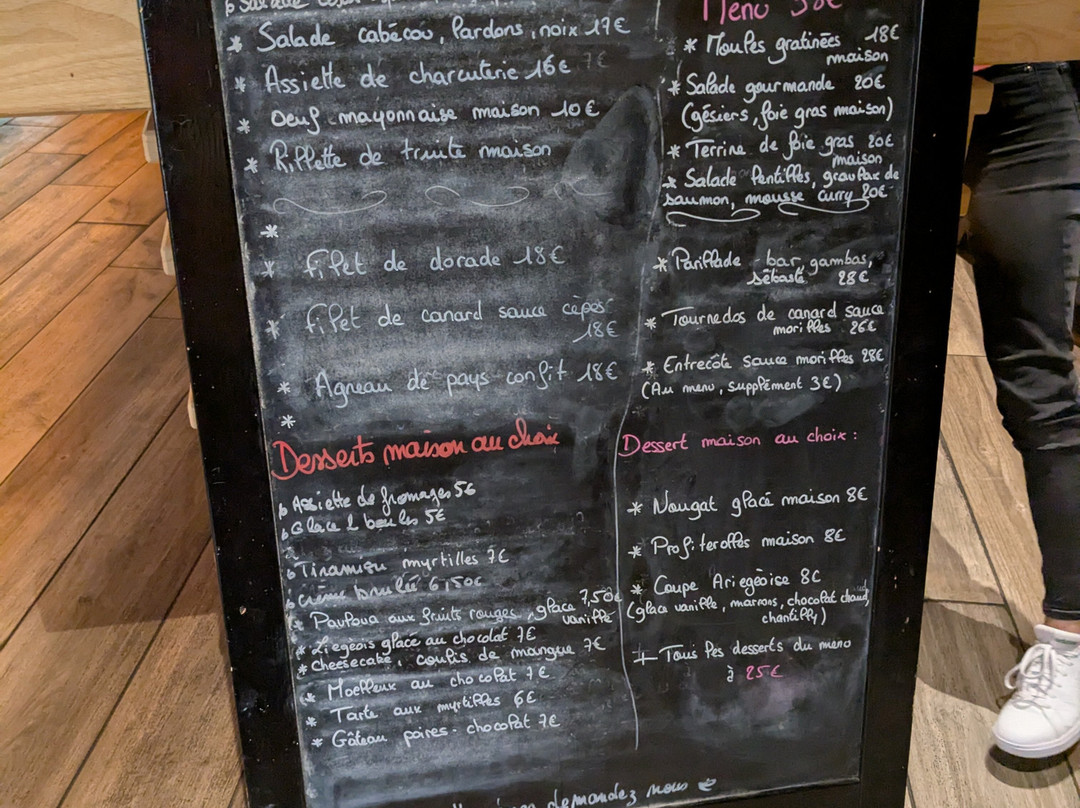 Salade
* Salade cabécou, lardons, noix 17€
* Assiette de charcuterie 16€ 7€
* Oeuf mayonnaise maison 10€
* Rillette de truite maison
*
* Filet de dorade 18€
* Filet de canard sauce cèpes
18€
* Agneau de pays confit 18€
*
Desserts maison au choix
Assiette de fromages 5€
Glace 2 boules 5€
Tiramisu myrtilles 7€
Crème brulée 6,50€
* Pavlova aux fruits rouges, glace 7,50€
vanille
* Liegeois glace au chocolat 7€
* cheesecake, coulis de mangue 7€
* Moelleux au chocolat 7€
* Tarte aux myrtilles 6€
* Gâteau poires-chocolat 7€
demandez nous
Menu
* Moules gratinées 18€
maison
* Salade gourmande 20€
(gésiers, foie gras maison)
* Terrine de foie gras 20€
maison
* Salade lentilles, gravlax de
saumon, mousse curry 20€
* Parillade - bar, gambas,
sébaste 28€
* Tournedos de canard sauce
morilles 26€
* Entrecôte sauce morilles 28€
(Au menu, supplément 3€)
Dessert maison au choix :
* Nougat glacé maison 8€
* Profiterolles maison 8€
* Coupe Ariegeoise 8€
(glace vanille, marrons, chocolat chaud,
chantilly)
+ Tous les desserts du menu
à 25€